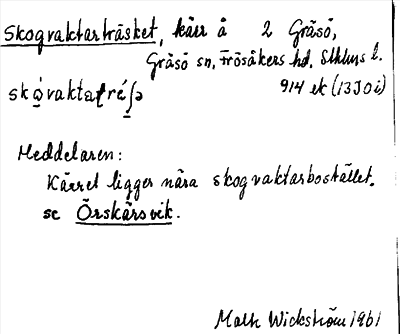 Skogvaktarträsket, kärr å 2 Gräsö,
Gräsö sn, Frösåkers hd. Sthlms l.
914 ek (13J0i)
Meddelaren:
Kärret ligger nära skogvaktarbostället.
se Örskärsvik.
Math Wickström 1961